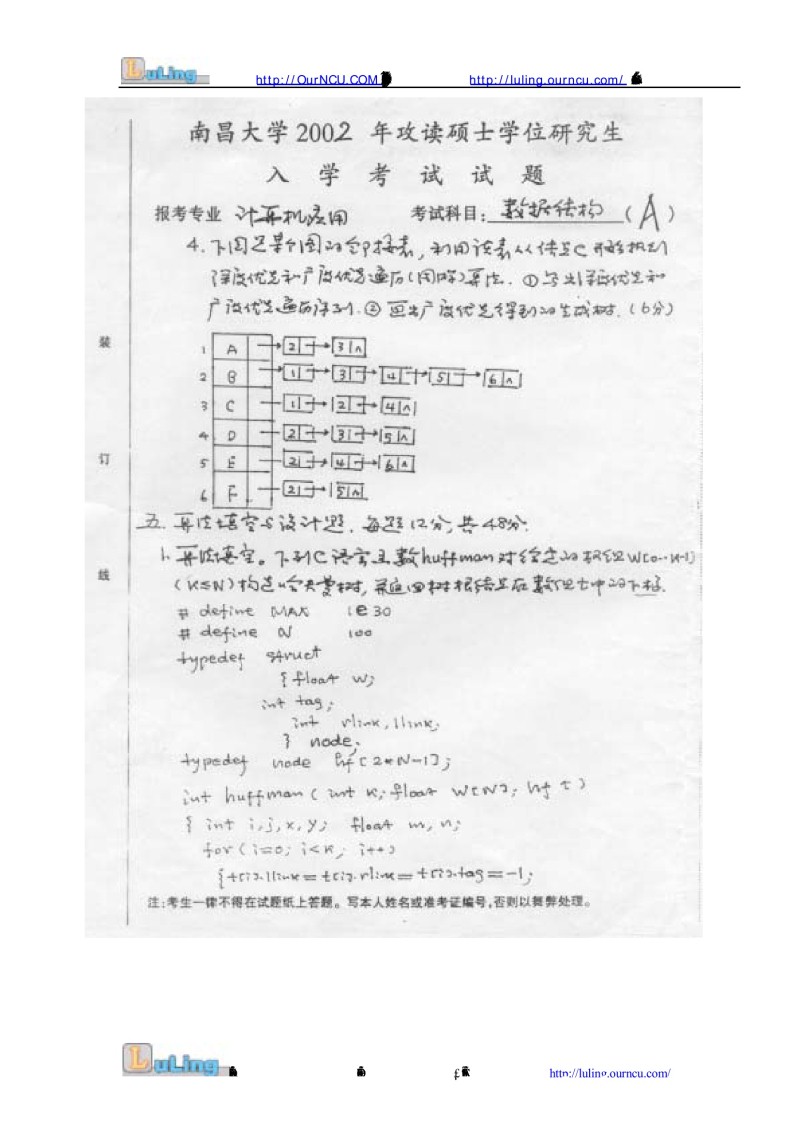 LuLing http://OurNCU.COM http://luling.ourncu.com/
南昌大学2002 年攻读硕士学位研究生
入 学 考 试 试 题
报考专业 计算机应用 考试科目: 数据结构 (A)
4. 下图是某个图的邻接表, 利用该表从结点C开始执行
深度优先和广度优先遍历(图的)算法. ①写出深度优先和
广度优先遍历序列. ②画出广度优先得到的生成树. (6分)
装
1 A 2 3 ∧
2 B 1 3 4 5 6 ∧
3 C 1 2 4 ∧
4 D 2 3 5 ∧
订
5 E 2 4 6 ∧
6 F 2 5 ∧
五. 算法填空与设计题. 每题12分, 共48分.
1. 算法填空。下列C语言函数huffman对给定的权组W[0..K-1]
线
(K≤N)构造哈夫曼树, 并返回树根结点在数组t中的下标.
# define MAX 1e30
# define N 100
typedef struct
{float w;
int tag;
int rlink, llink;
} node;
typedef node hf[2*N-1];
int huffman (int K; float W[N]; hf t)
{ int i,j,x,y; float m,n;
for (i=0; i<K; i++)
{t[i].llink=t[i].rlink=t[i].tag=-1;
注:考生一律不得在试题纸上答题。写本人姓名或准考证编号,否则以舞弊处理。
LuLing http://luling.ourncu.com/